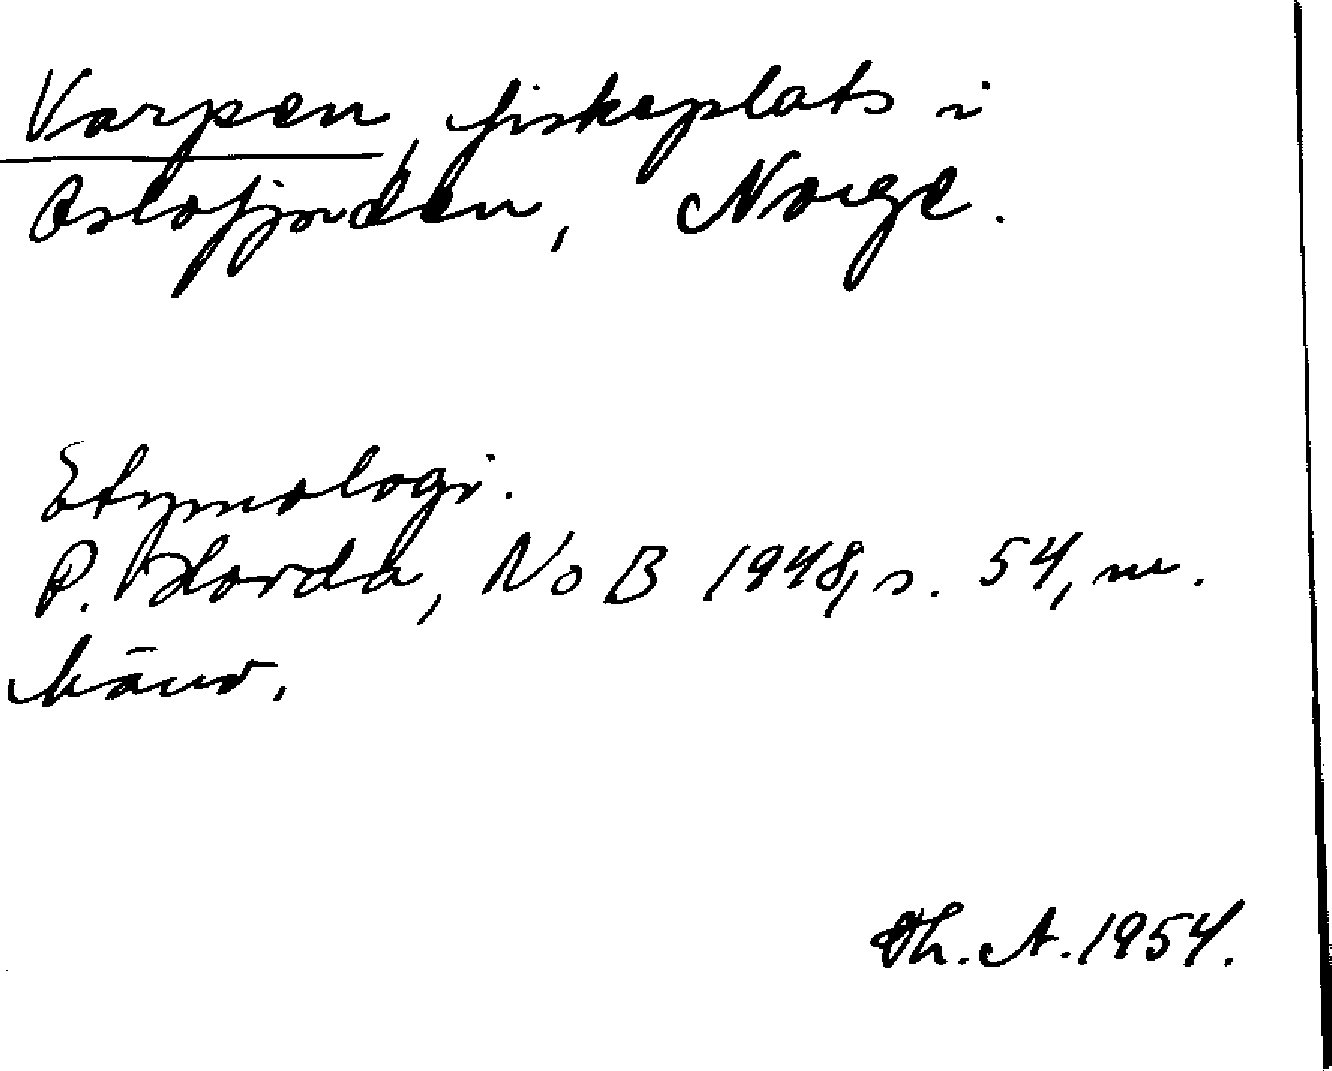 Varpen, fiskeplats i
Oslofjorden, Norge.
Etymologi.
P. Hovda, NoB 1948, s. 54, m.
hänv.
Th. A. 1954.